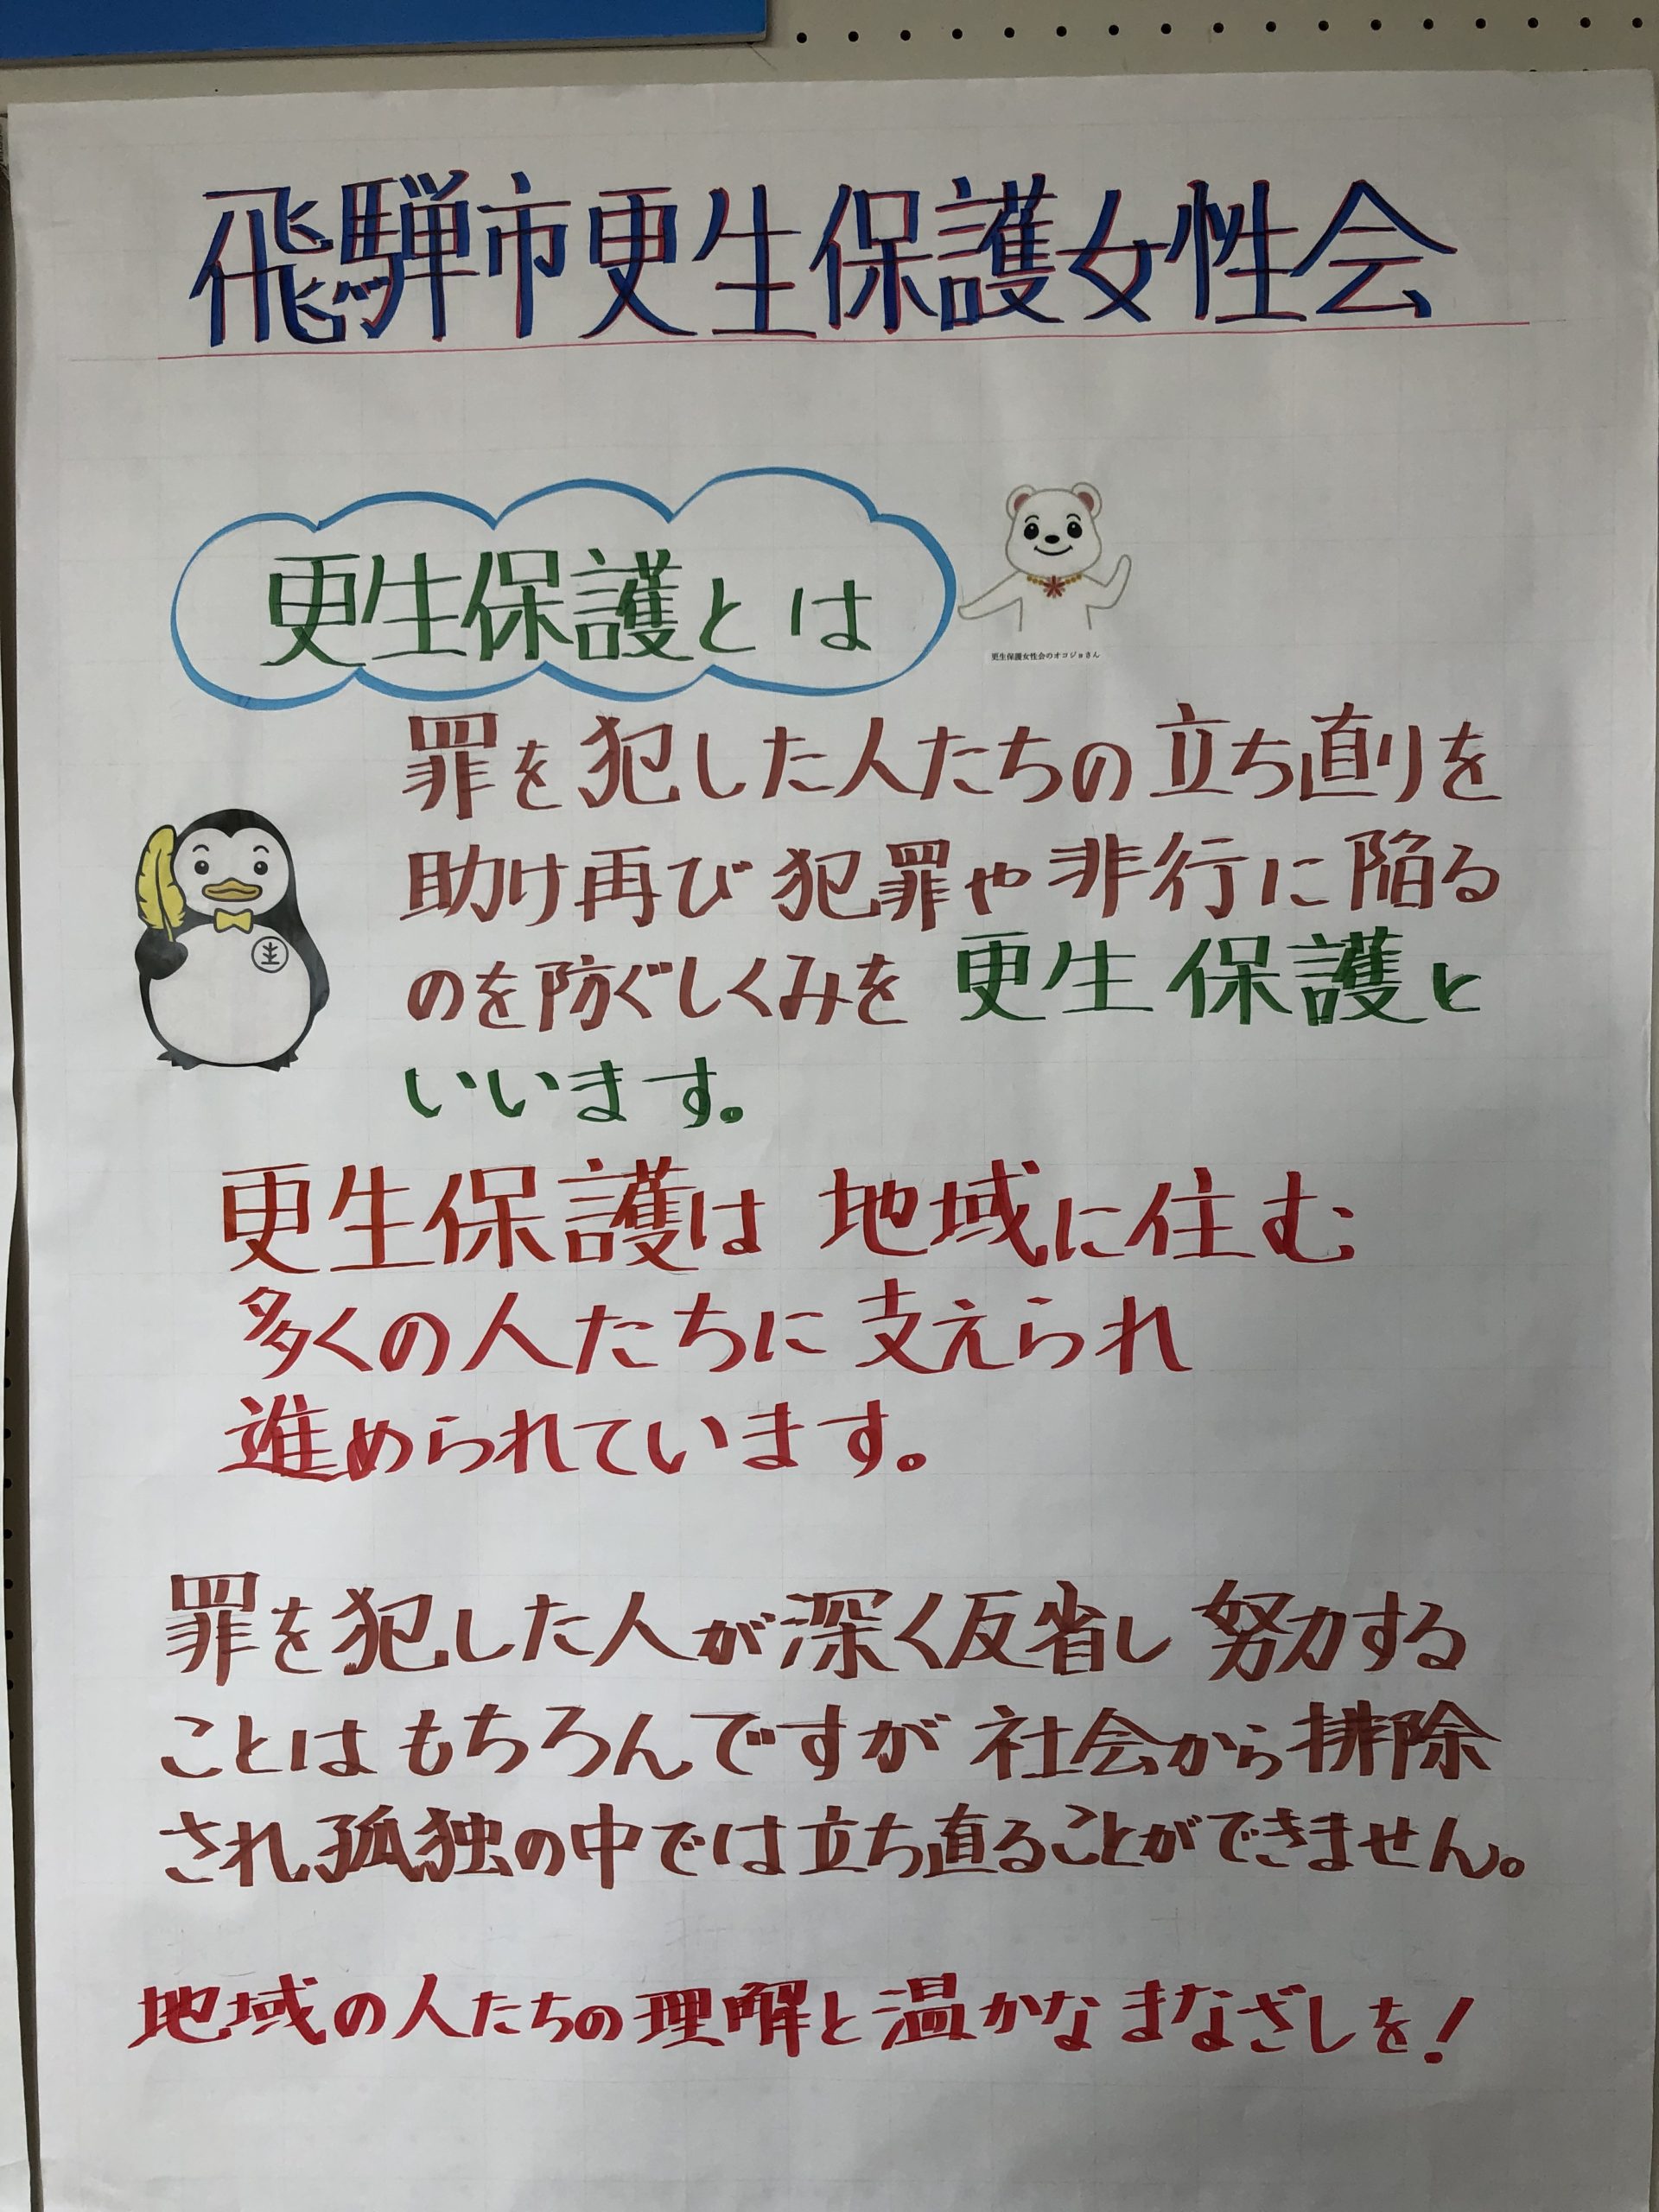 飛騨市更生保護女性会
更生保護とは
更生保護女性会のオコジョさん
罪を犯した人たちの立ち直りを
助け再び犯罪や非行に陥る
のを防ぐしくみを更生保護と
いいます。
更生保護は地域に住む
多くの人たちに支えられ
進められています。
罪を犯した人が深く反省し努力する
ことはもちろんですが社会から排除
され孤独の中では立ち直ることができません。
地域の人たちの理解と温かなまなざしを!